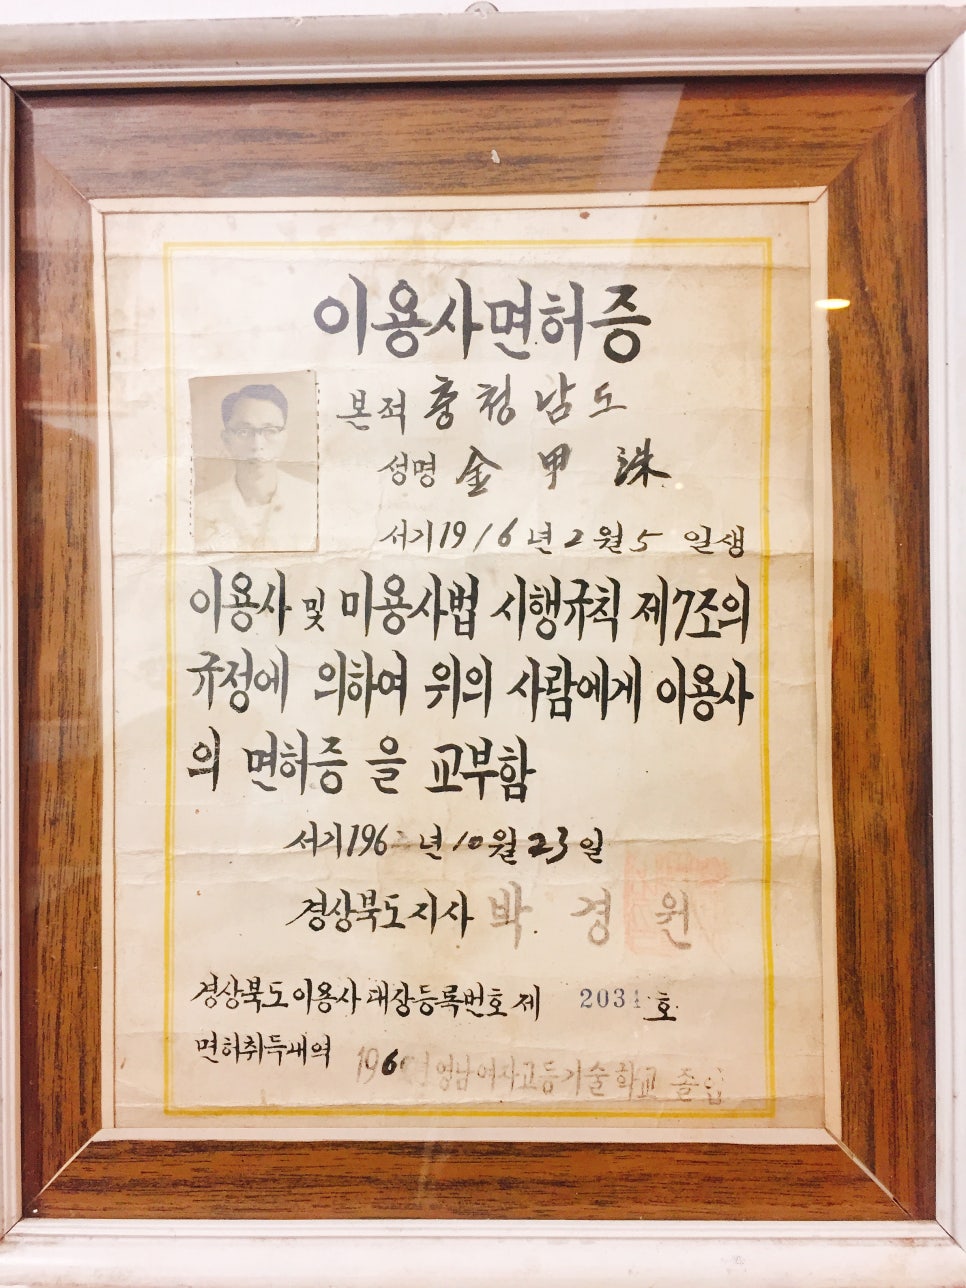 이용사면허증
본적 충청남도
성명 金甲洙
서기1916년2월5 일생
이용사 및 미용사법 시행규칙 제7조의
규정에 의하여 위의 사람에게 이용사
의 면허증 을 교부함
서기196 년10월23일
경상북도지사 박 경 원
경상북도이용사대장등록번호 제 203 호
면허취득내역 영남여자고등기술학교